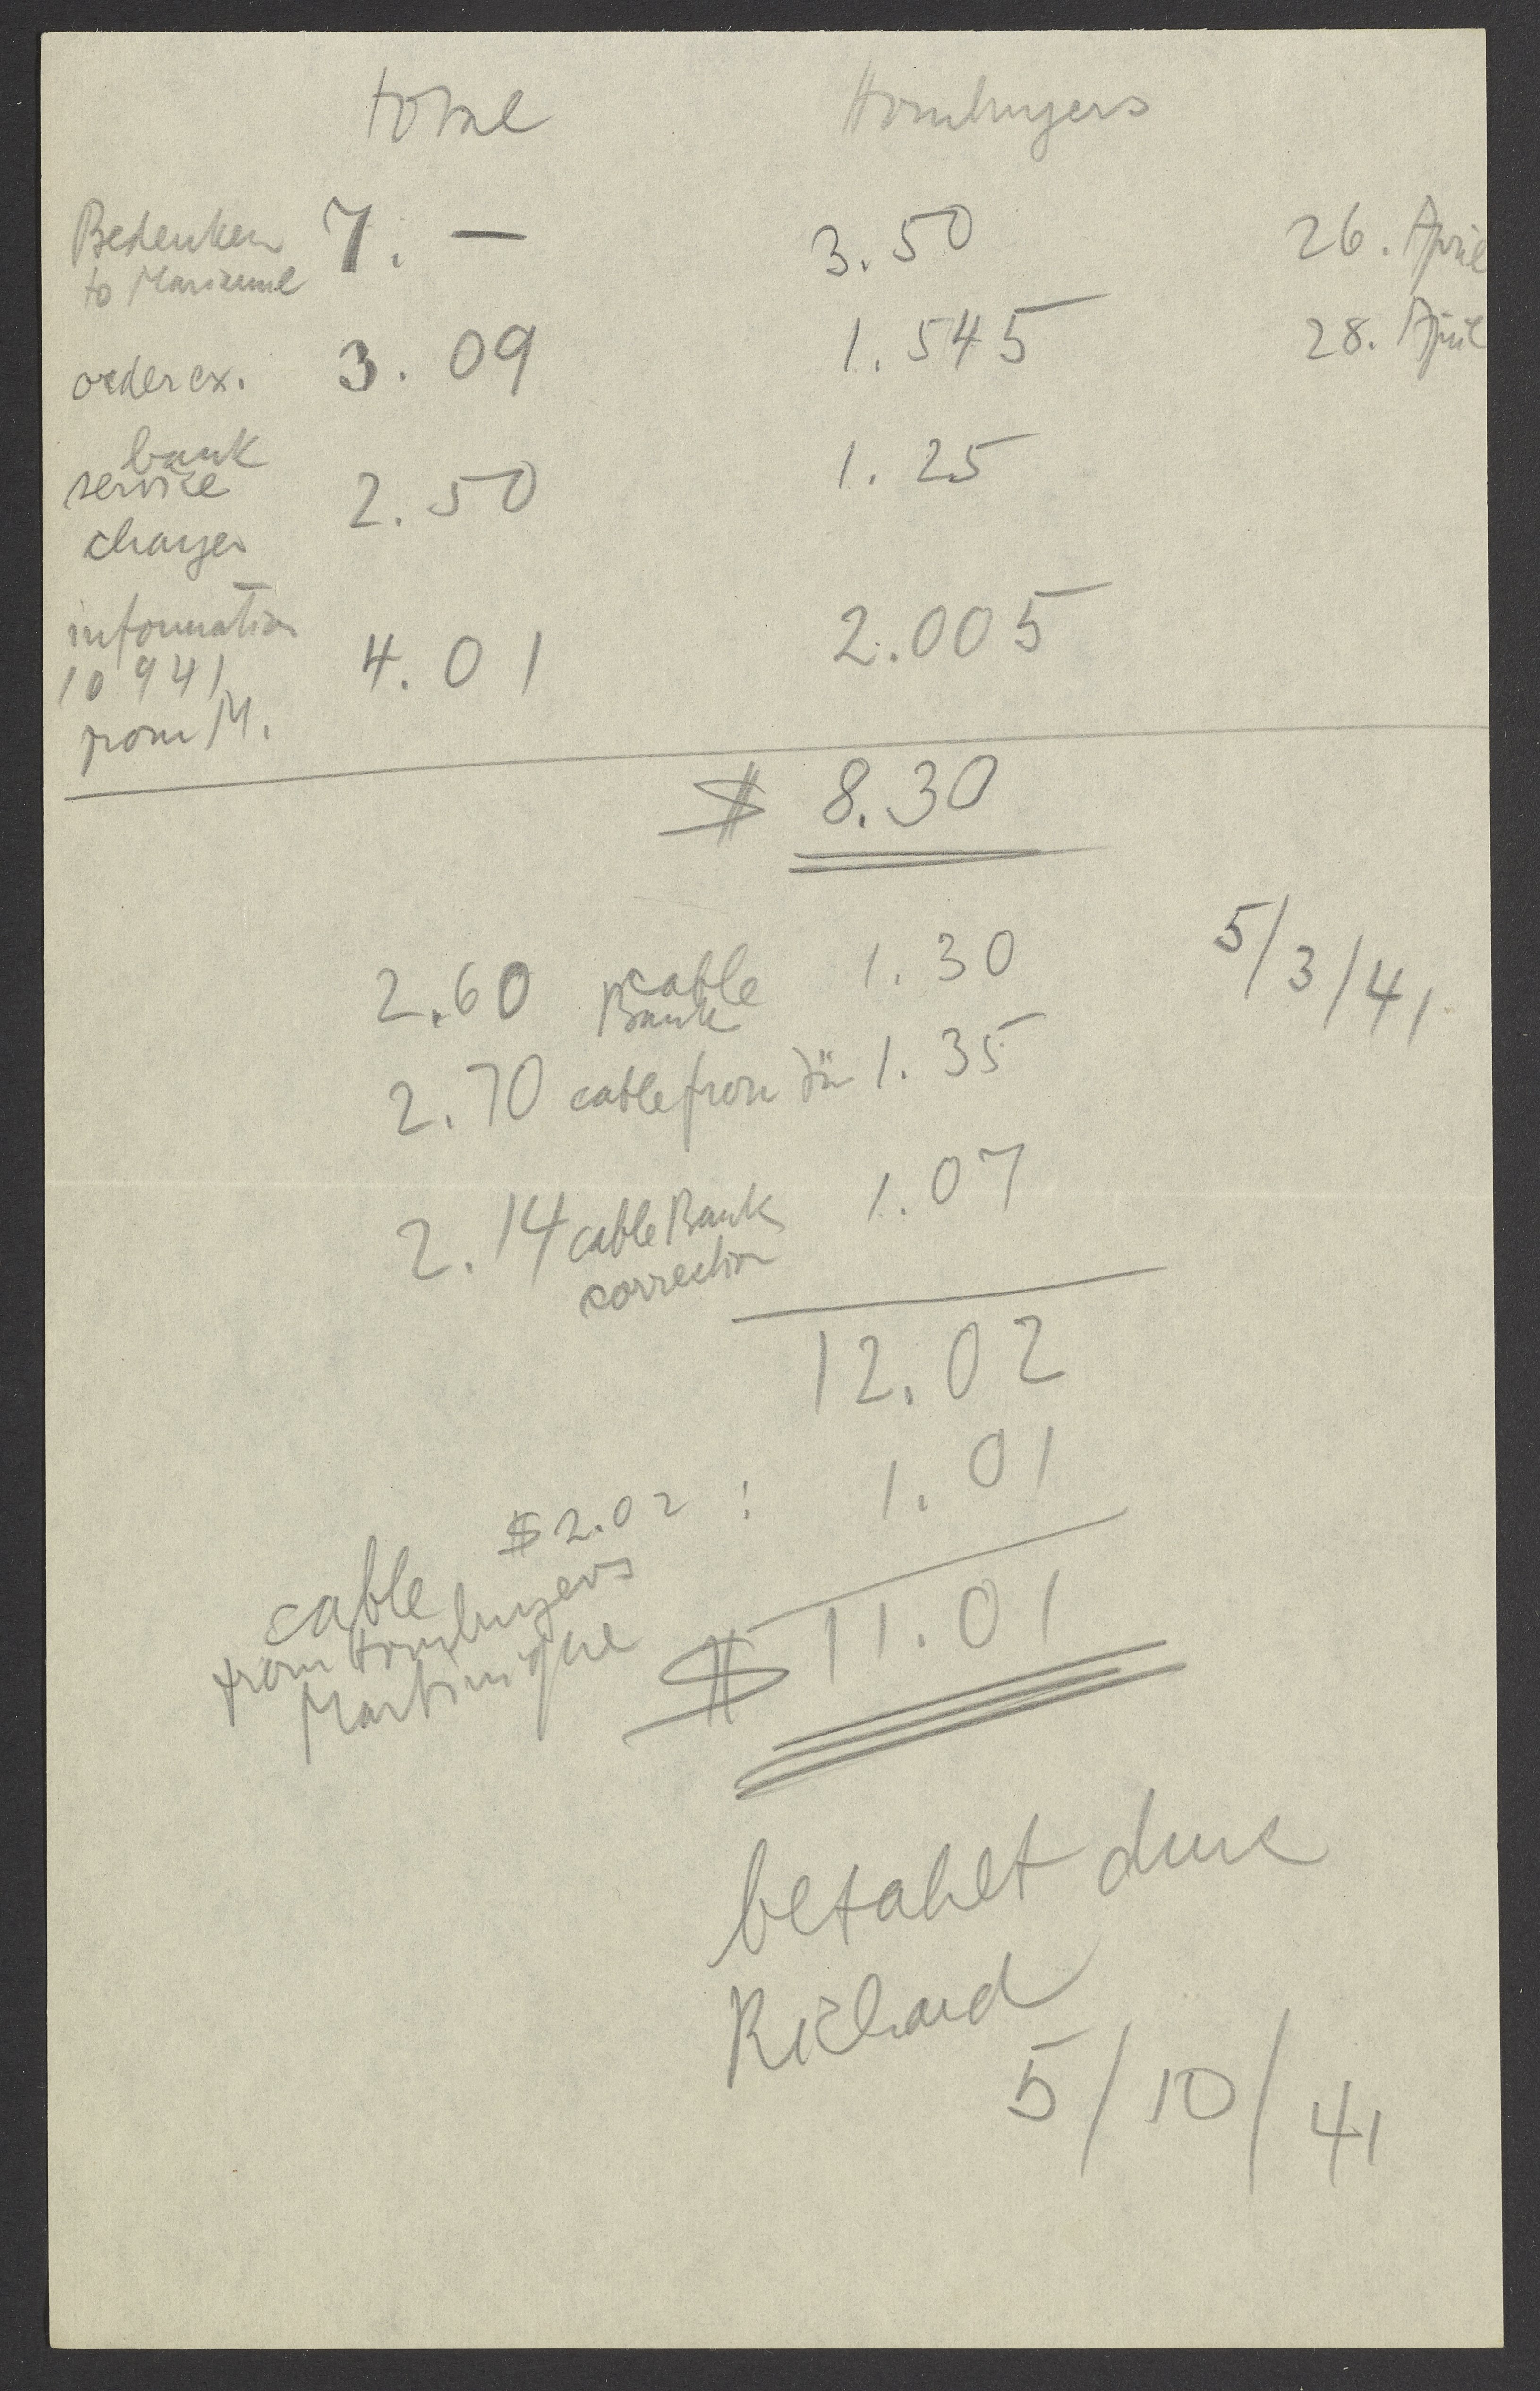 total Homburgers
Bedenken 7. — 3.50 26. April
to Marianne
order ex. 3.09 1.545 28. April
bank
service 2.50 1.25
charges
information
10941 4.01 2.005
from M.
$ 8.30
2.60 cable 1.30 5/3/41
Bank
2.70 cable from 1.35
2.14 cable Bank 1.07
correction
12.02
$2.02 : 1.01
cable
from Homburgers
Martinique
$ 11.01
bezahlt durch
Richard
5/10/41